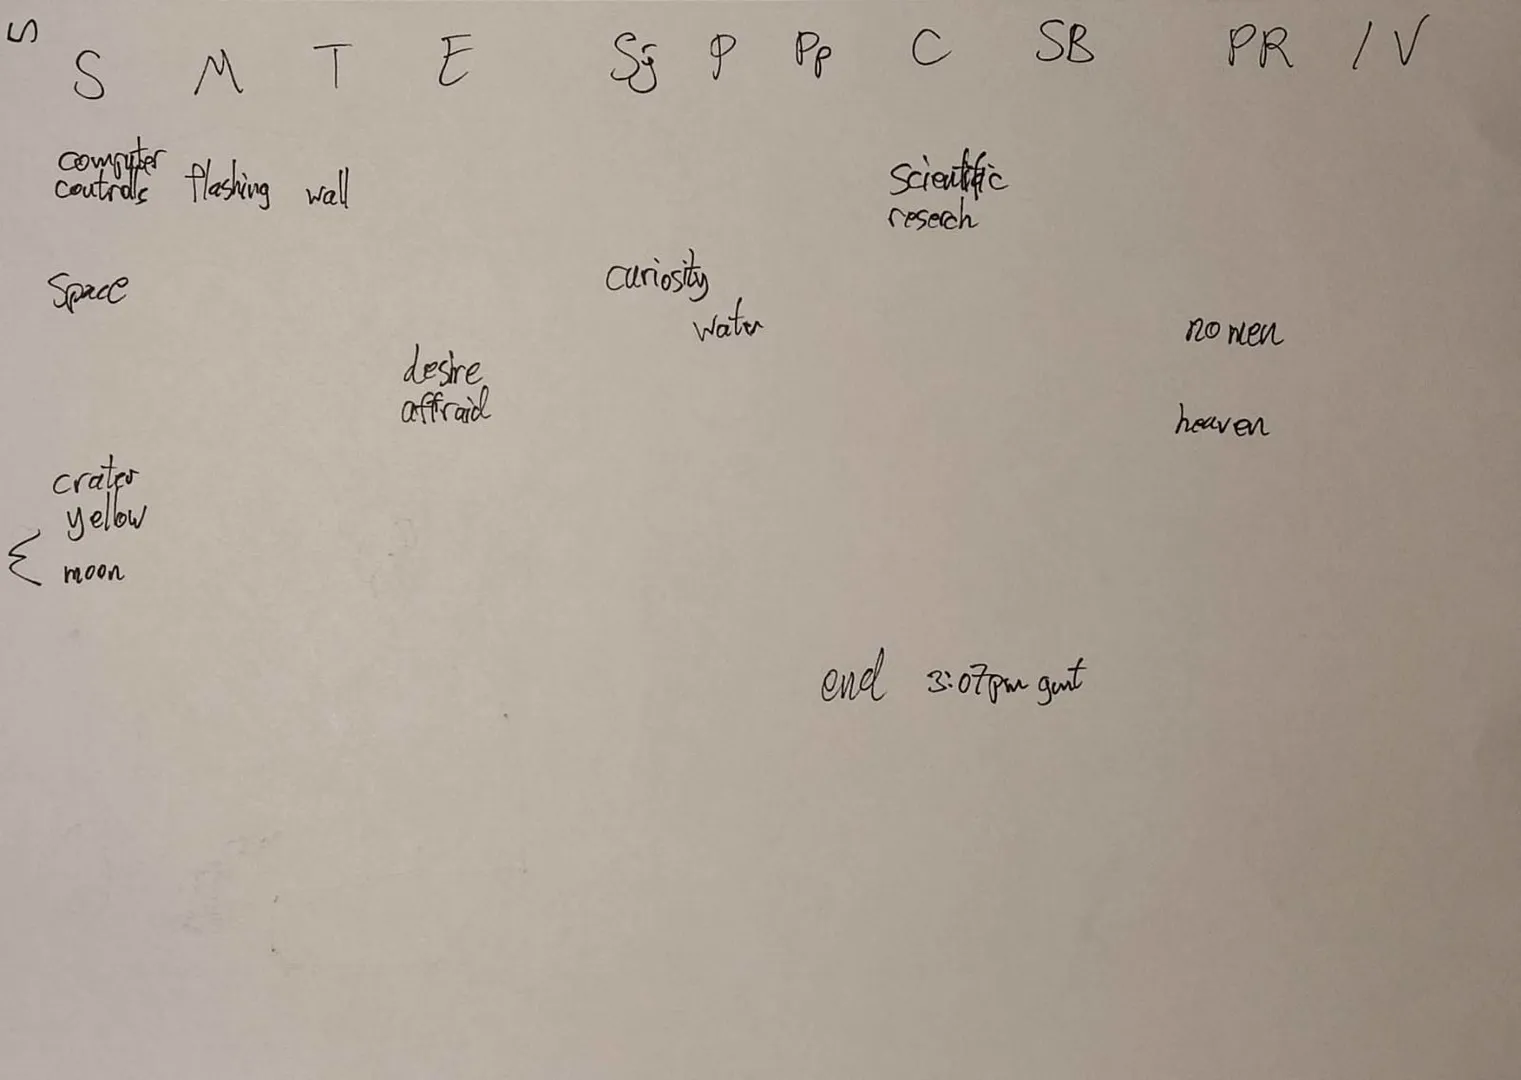 5
S M T E Sj P Pp C SB PR / V
computer
controls flashing wall
scientific
reserch
Space
curiosity
water
no men
desire
affraid
heaven
crater
yellow
moon
end 3:07pm gmt